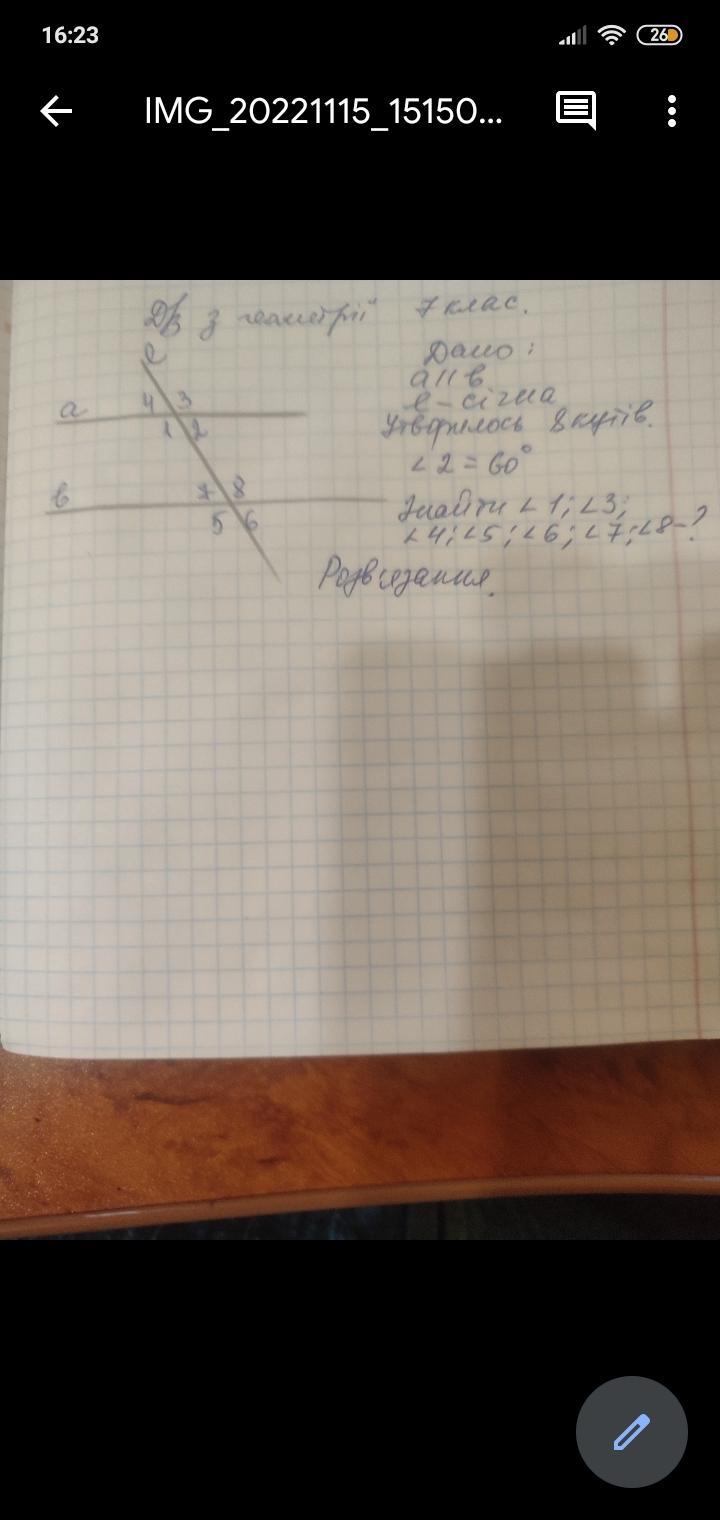 16:23
26
IMG_20221115_15150...
Д/з з геометрії 7 клас.
e
a
4 3
1 2
в
7 8
5 6
Дано:
a||в
e - січна
Утворилось 8 кутів.
∠2 = 60°
Знайти ∠1; ∠3;
∠4; ∠5; ∠6; ∠7; ∠8-?
Розв'язання.